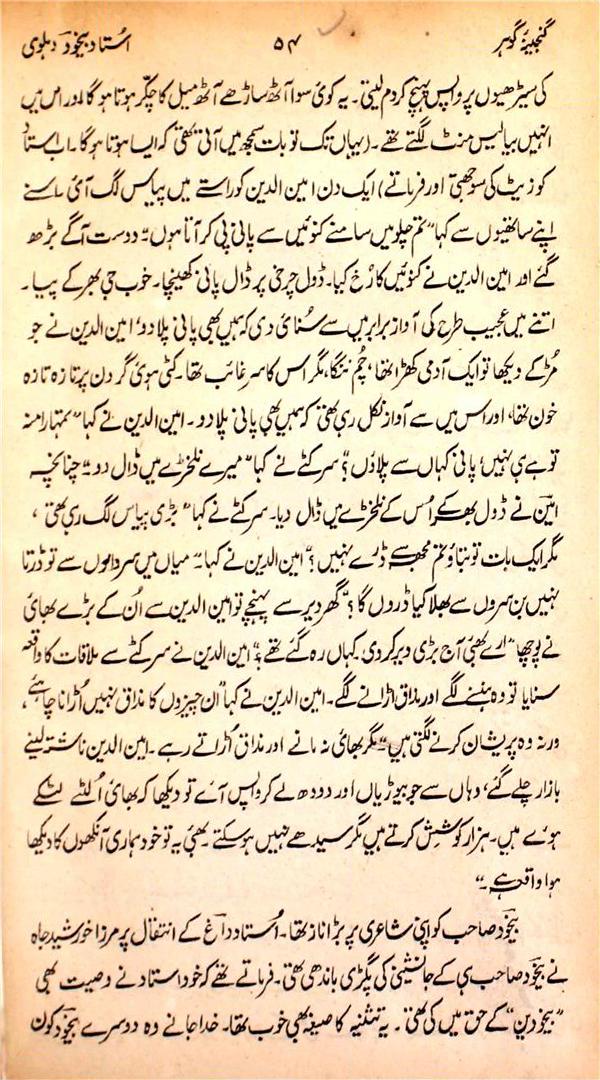 گنجینۂ گوہر ۵۴ اُستاد بیخودؔ دہلوی
کی سیڑھیوں پر واپس پہنچ کر دم لیتی۔ یہ کوئی سوا آٹھ ساڑھے آٹھ میل کا چکّر ہوتا ہو گا اور اس میں
انہیں بیالیس منٹ لگتے تھے۔ (یہاں تک تو بات سمجھ میں آتی تھی کہ ایسا ہوتا ہو گا۔ اب استاد
کو زیٹ کی سوجھتی اور فرماتے) ایک دن امین الدین کو راستے میں پیاس لگ آئی۔ اس نے
اپنے ساتھیوں سے کہا "تم چلو میں سامنے کنوئیں سے پانی پی کر آتا ہوں" دوست آگے بڑھ
گئے اور امین الدین نے کنوئیں کا رُخ کیا۔ ڈول چرخی پر ڈال پانی کھینچا۔ خوب جی بھر کے پیا۔
اتنے میں عجیب طرح کی آواز برابر میں سے سُنائی دی کہ ہمیں بھی پانی پلا دو۔ امین الدین نے جو
مُڑ کے دیکھا تو ایک آدمی کھڑا تھا، جُم ننگا، مگر اس کا سر غائب تھا۔ کٹی ہوئی گردن پر تازہ تازہ
خون تھا، اور اس میں سے آواز نکل رہی تھی کہ ہمیں بھی پانی پلا دو۔ امین الدین نے کہا "تمہارا منہ
تو ہے ہی نہیں؛ پانی کہاں سے پلاؤں؟" سرکٹے نے کہا "میرے نلخڑے میں ڈال دو۔" چنانچہ
امین نے ڈول بھر کے اُس کے نلخڑے میں ڈال دیا۔ سرکٹے نے کہا "بڑی پیاس لگ رہی تھی،
مگر ایک بات تو بتاؤ تم مجھ سے ڈرے نہیں؟" امین الدین نے کہا۔ "میاں میں سر والوں سے تو ڈرتا
نہیں بن سروں سے بھلا کیا ڈروں گا؟" گھر دیر سے پہنچے تو امین الدین سے اُن کے بڑے بھائی
نے پوچھا "ارے بھئی آج بڑی دیر کر دی۔ کہاں رہ گئے تھے؟" امین الدین نے سرکٹے سے ملاقات کا واقعہ
سنایا تو وہ ہنسنے لگے اور مذاق اڑانے لگے۔ امین الدین نے کہا "ان چیزوں کا مذاق نہیں اُڑانا چاہئے،
ورنہ وہ پریشان کرنے لگتی ہیں" مگر بھائی نہ مانے اور مذاق اُڑاتے رہے۔ امین الدین ناشتہ لینے
بازار چلے گئے، وہاں سے جو بیڑیاں اور دودھ لے کر واپس آئے تو دیکھا کہ بھائی اُلٹے لٹکے
ہوئے ہیں۔ ہزار کوشش کرتے ہیں مگر سیدھے نہیں ہو سکتے۔ بھئی یہ تو خود ہماری آنکھوں کا دیکھا
ہوا واقعہ ہے۔"
بیخودؔ صاحب کو اپنی شاعری پر بڑا ناز تھا۔ اُستاد داغؔ کے انتقال پر مرزا خورشید جاہ
نے بیخودؔ صاحب ہی کے جانشینی کی پگڑی باندھی تھی۔ فرماتے تھے کہ خود استاد نے وصیت بھی
"بیخودین" کے حق میں کی تھی۔ یہ تثنیہ کا صیغہ بھی خوب تھا۔ خدا جانے وہ دوسرے بیخودؔ کون